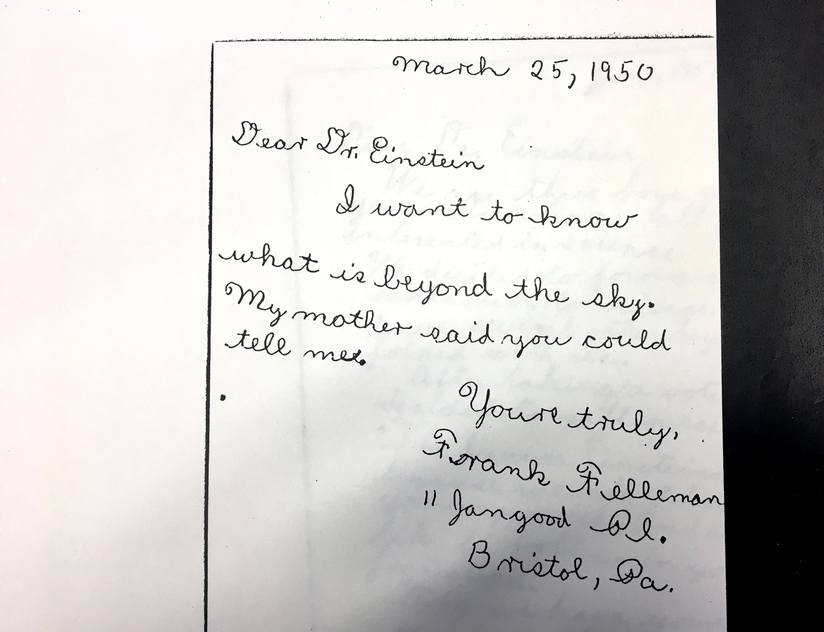 March 25, 1950
Dear Dr. Einstein
I want to know
what is beyond the sky.
My mother said you could
tell me.
Youre truly,
Frank Felleman
11 Jangood Pl.
Bristol, Pa.